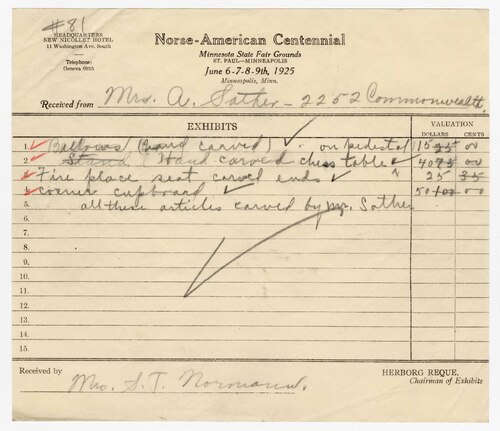 #81
HEADQUARTERS
NEW NICOLLET HOTEL
11 Washington Ave. South
Telephone:
Geneva 6935
Norse-American Centennial
Minnesota State Fair Grounds
ST. PAUL—MINNEAPOLIS
June 6-7-8-9th, 1925
Minneapolis, Minn.
Received from Mrs. A. Sather - 2252 Commonwealth
EXHIBITS
VALUATION
DOLLARS CTS
1. Bellows (Hand carved) on pedestal
2. Stand Hand carved chess table
3. Fire place seat carved ends 25
4. corner cupboard 50
5. all these articles carved by Mr. Sather
6.
7.
8.
9.
10.
11.
12.
13.
14.
15.
Received by Mrs. S. T. Normann.
HERBORG REQUE,
Chairman of Exhibits